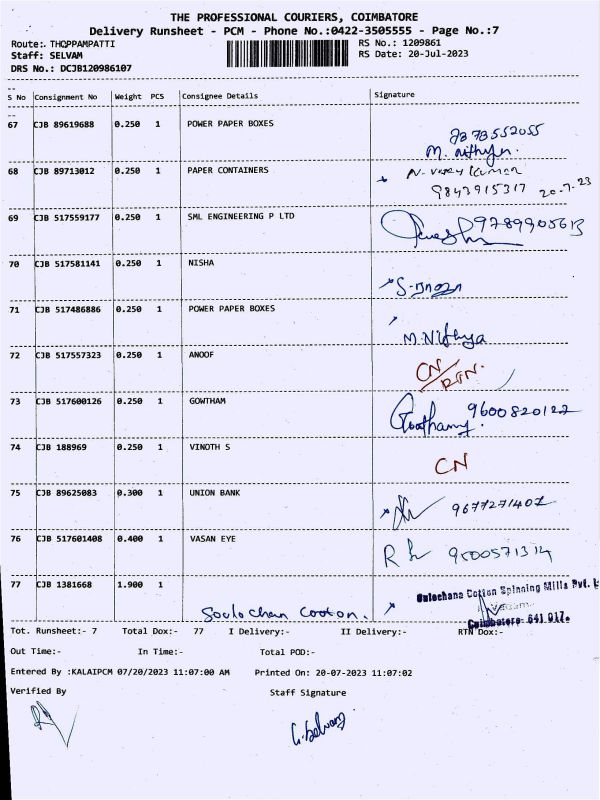 THE PROFESSIONAL COURIERS, COIMBATORE
Delivery Runsheet - PCM - Phone No.:0422-3505555 - Page No.:7
Route:. THOPPAMPATTI RS No.: 1209861
Staff: SELVAM RS Date: 20-Jul-2023
DRS No.: DCJB120986107
S No Consignment No Weight PCS Consignee Details Signature
67 CJB 89619688 0.250 1 POWER PAPER BOXES
M. Nithya.
68 CJB 89713012 0.250 1 PAPER CONTAINERS
9843915317 20.7.23
69 CJB 517559177 0.250 1 SML ENGINEERING P LTD
70 CJB 517581141 0.250 1 NISHA
71 CJB 517486886 0.250 1 POWER PAPER BOXES
M.Nithya
72 CJB 517557323 0.250 1 ANOOF CN/RTN.
73 CJB 517600126 0.250 1 GOWTHAM 9600820122
74 CJB 188969 0.250 1 VINOTH S CN
75 CJB 89625083 0.300 1 UNION BANK 9677271402
76 CJB 517601408 0.400 1 VASAN EYE
77 CJB 1381668 1.900 1 Sulochana Cotton Spinning Mills Pvt. L
Soolochan Cooton. Coimbatore- 641 017.
Tot. Runsheet:- 7 Total Dox:- 77 I Delivery:- II Delivery:- RTN Dox:-
Out Time:- In Time:- Total POD:-
Entered By :KALAIPCM 07/20/2023 11:07:00 AM Printed On: 20-07-2023 11:07:02
Verified By Staff Signature